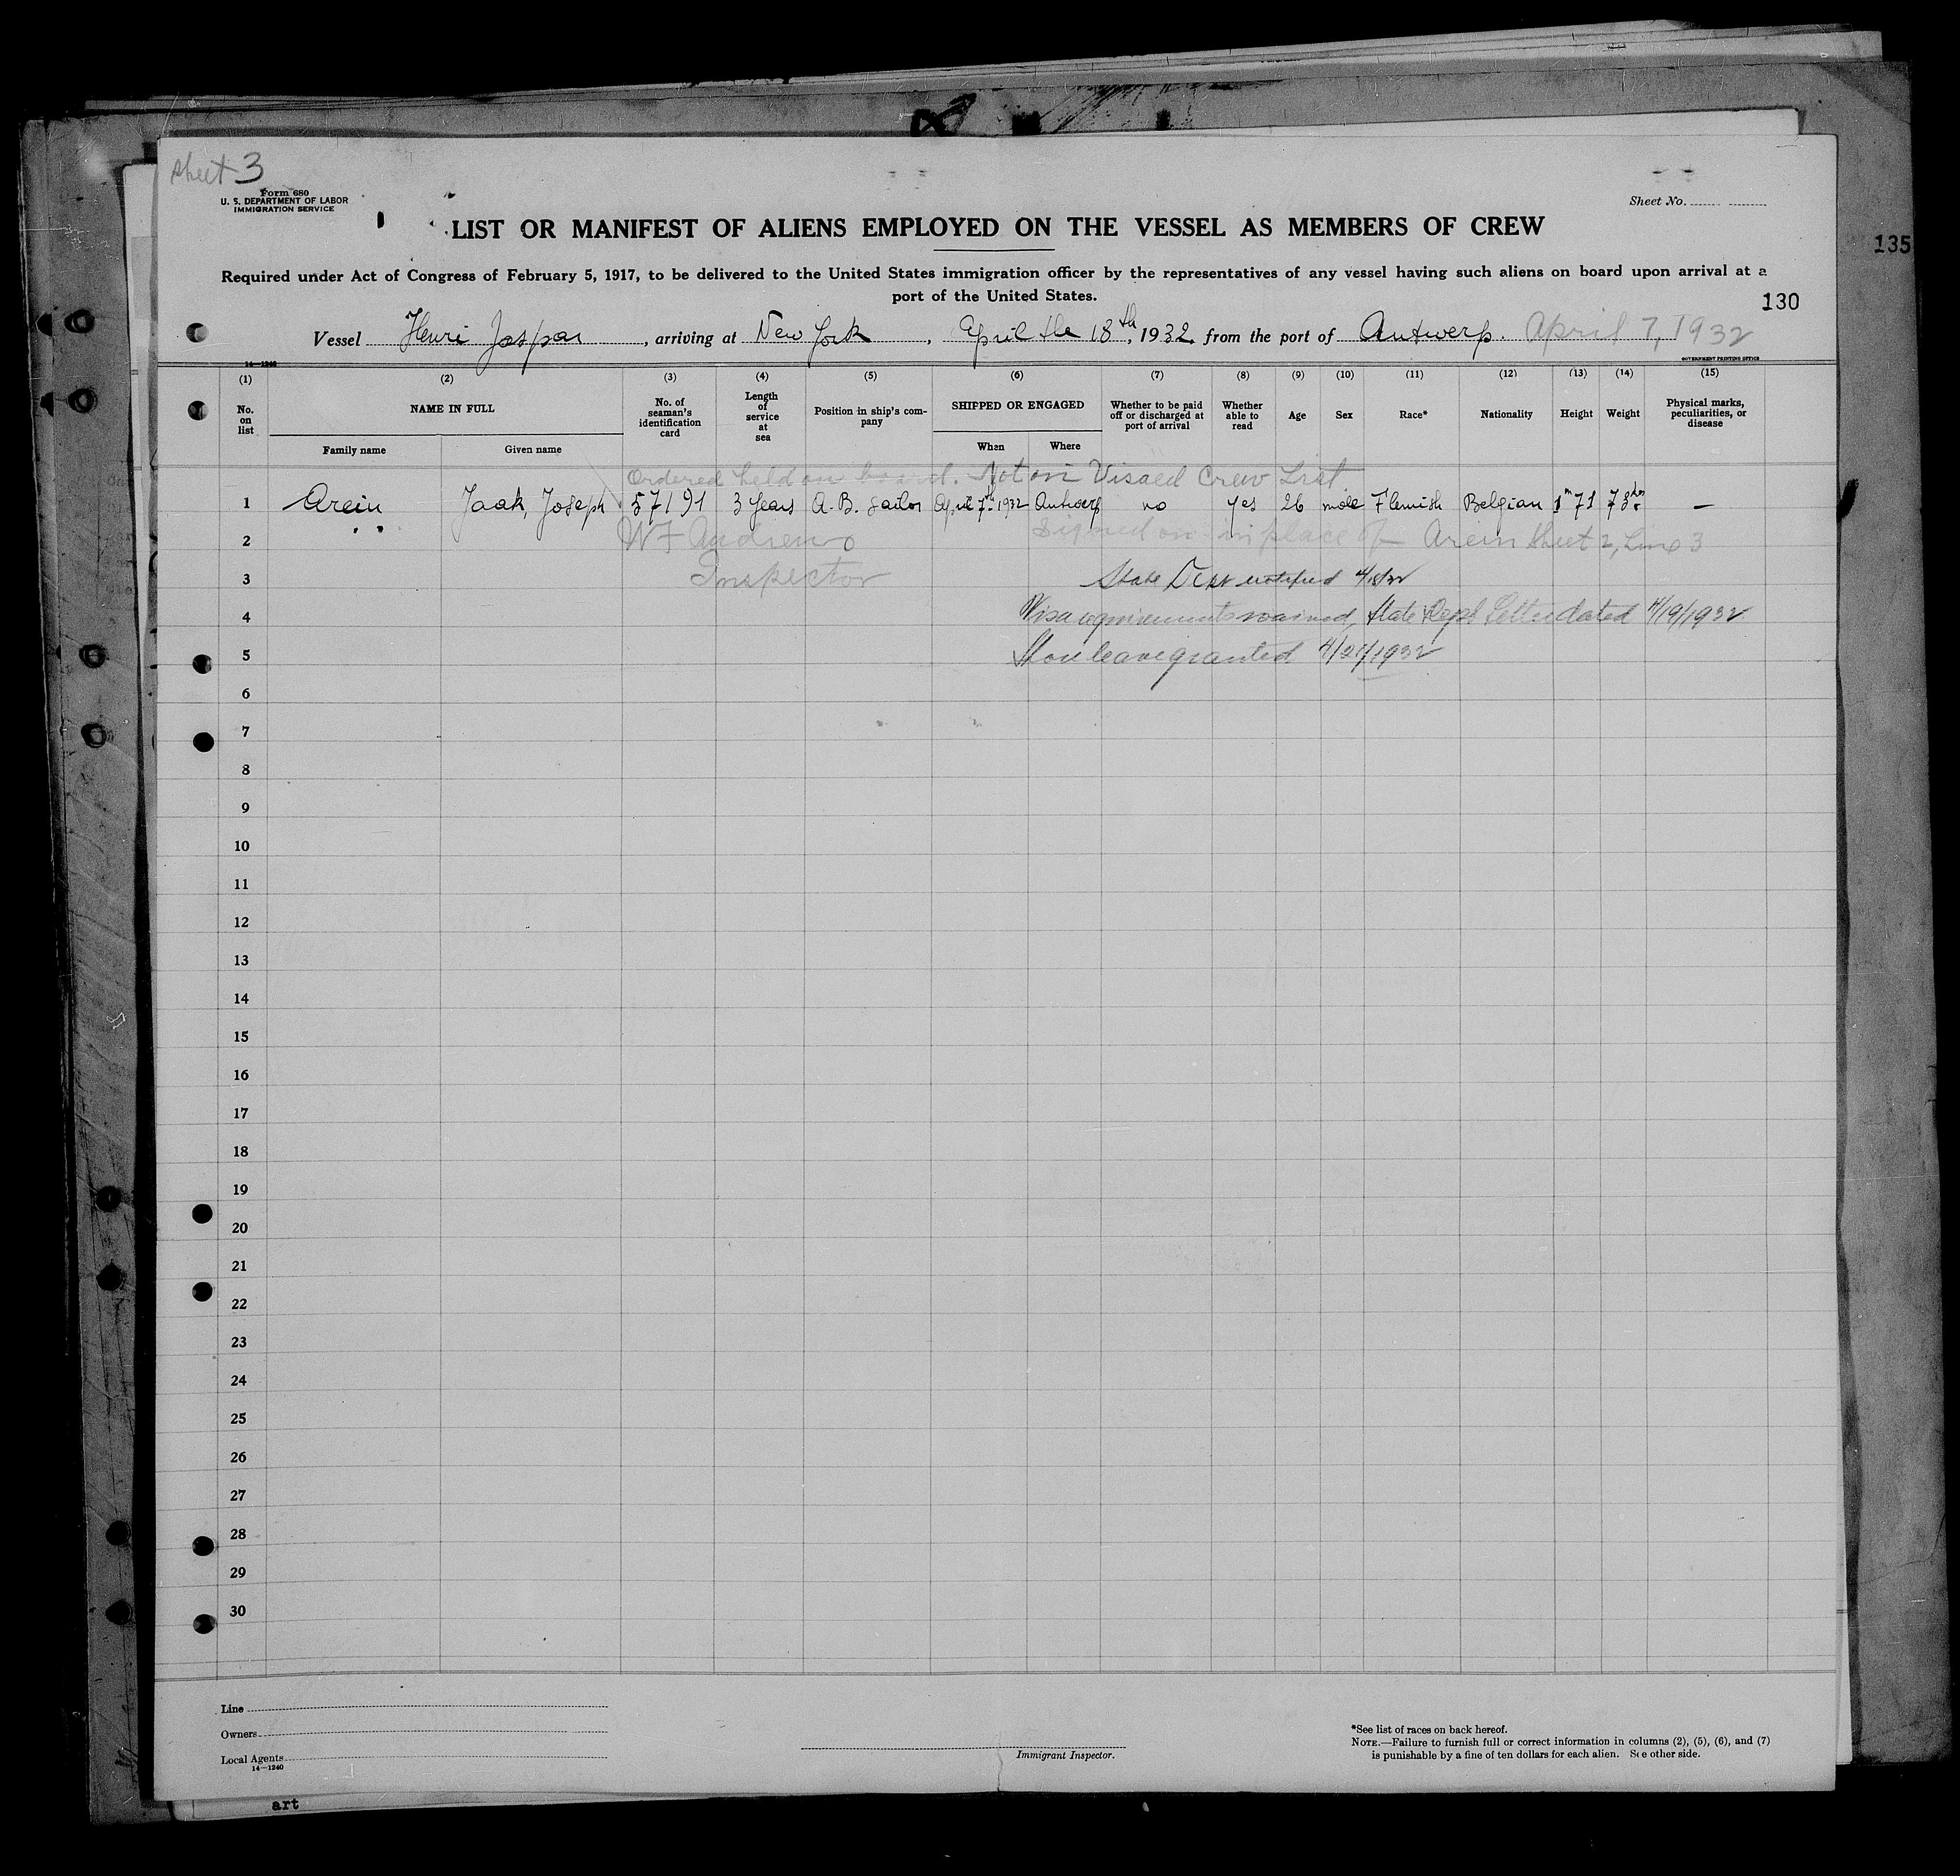 sheet 3
Form 680
U. S. DEPARTMENT OF LABOR
IMMIGRATION SERVICE
Sheet No.
LIST OR MANIFEST OF ALIENS EMPLOYED ON THE VESSEL AS MEMBERS OF CREW
135
Required under Act of Congress of February 5, 1917, to be delivered to the United States immigration officer by the representatives of any vessel having such aliens on board upon arrival at a
port of the United States.
130
Vessel Henri Jaspar, arriving at New York, April the 18th, 1932 from the port of Antwerp. April 7, 1932
14—1240 GOVERNMENT PRINTING OFFICE
(1) (2) (3) (4) (5) (6) (7) (8) (9) (10) (11) (12) (13) (14) (15)
No. on list NAME IN FULL Family name Given name No. of seaman's identification card Length of service at sea Position in ship's company SHIPPED OR ENGAGED When Where Whether to be paid off or discharged at port of arrival Whether able to read Age Sex Race* Nationality Height Weight Physical marks, peculiarities, or disease
Ordered held on board. Not on Visaed Crew List
1 Arein Jaak, Joseph 57191 3 years A. B. Sailor April 7th 1932 Antwerp no yes 26 male Flemish Belgian 1m 71 73 —
2 W F Andrews Signed on in place of Arein Sheet 2, Line 3
3 Inspector State Dept notified 4/18/32
4 Visa requirements waived, State Dept Letter dated 4/19/1932
5 Shore leave granted 4/21/1932
6
7
8
9
10
11
12
13
14
15
16
17
18
19
20
21
22
23
24
25
26
27
28
29
30
Line
Owners
Local Agents
14—1240
Immigrant Inspector.
*See list of races on back hereof.
NOTE.—Failure to furnish full or correct information in columns (2), (5), (6), and (7)
is punishable by a fine of ten dollars for each alien. See other side.
art